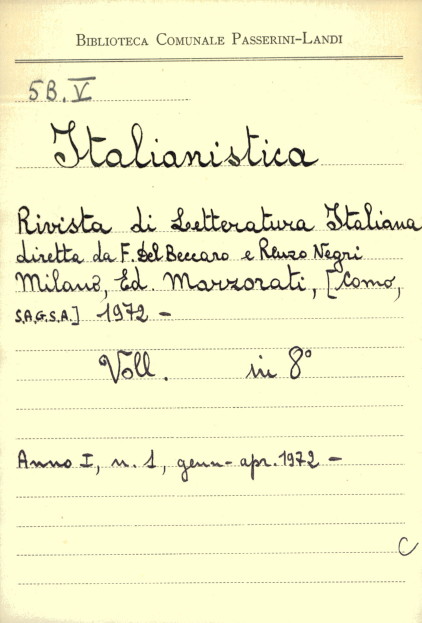 BIBLIOTECA COMUNALE PASSERINI-LANDI
5B.V
Italianistica
Rivista di Letteratura Italiana
diretta da F. Del Beccaro e Renzo Negri
Milano, Ed. Marzorati, [Como,
S.A.G.S.A.] 1972 -
Voll. in 8°
Anno I, n. 1, genn-apr. 1972 -
C